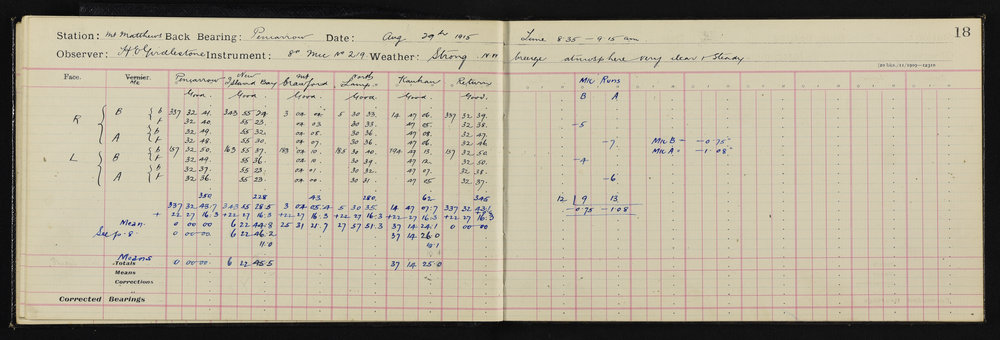 18
Station: Mt Matthews Back Bearing: Pencarrow Date: Aug 29th 1915 Time 8.35 - 9.15 am
Observer: H E Girdlestone Instrument: 8" Mic No 219 Weather: Strong N.W. breeze atmosphere very clear & steady
Face. Vernier. Mic Pencarrow New Island Bay Mt Crawford North Lamp. Kaukau Return Mic Runs
Good. Good. Good. Good. Good. Good. B A
R B b 337 32 41. 343 55 24. 3 04 04. 5 30 33. 14 47 06. 337 32 39.
f 32 40. 55 23. 04 03. 30 33. 47 05. 32 38. -5
A b 32 49. 55 32. 04 08. 30 36. 47 08. 32 47.
f 32 48. 55 30. 04 07. 30 36. 47 06. 32 46. -7. Mic B = -0.75
L B b 157 32 50. 163 55 37. 183 04 10. 185 30 40. 194 47 13. 157 32 50. Mic A = -1.08
f 32 49. 55 36. 04 10. 30 39. 47 12. 32 50. -4
A b 32 37. 55 23. 04 01. 30 32. 47 07. 32 38.
f 32 36. 55 23. 04 00. 30 31. 47 05 32 37. -6
350 228 43. 280. 62 345
337 32 43.7 343 55 28.5 3 04 05.4 5 30 35. 14 47 07.7 337 32 43.1 12 9 13
+ +22 27 16.3 +22 27 16.3 +22 27 16.3 +22 27 16.3 +22 27 16.3 +22 27 16.3 -0.75 -1.08
Mean 0 00 00 6 22 44.8 25 31 21.7 27 57 51.3 37 14 24.1 0 00 00
See p. 8 0 00 00. 6 22 46.2 37 14 26.0
11.0 10.1
Means
Totals 0 00 00. 6 22 45.5 37 14 25.0
Means
Corrections
Corrected Bearings